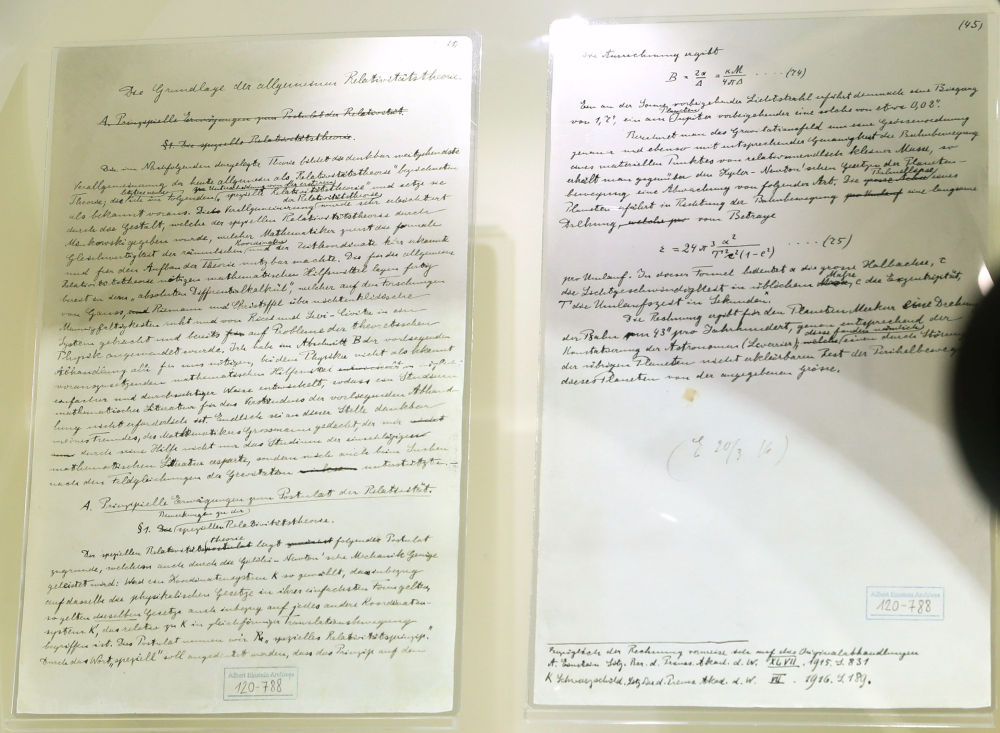 Die Grundlage der allgemeinen Relativitätstheorie.
A. Prinzipielle Erwägungen zum Postulat der Relativität.
§1. Die spezielle Relativitätstheorie.
Die im Nachfolgenden dargelegte Theorie bildet die denkbar weitgehendste
Verallgemeinerung der heute allgemein als „Relativitätstheorie" bezeichneten
Theorie; die letztere nenne ich im Folgenden zur Unterscheidung von der ersteren „spezielle Relativitätstheorie" und setze sie
als bekannt voraus. Die Verallgemeinerung der Relativitätstheorie wurde sehr erleichtert
durch die Gestalt, welche der speziellen Relativitätstheorie durch
Minkowski gegeben wurde, welcher Mathematiker zuerst die formale
Gleichwertigkeit der räumlichen Koordinaten und der Zeitkoordinate klar erkannte
und für den Aufbau der Theorie nutzbar machte. Die für die allgemeine
Relativitätstheorie nötigen mathematischen Hilfsmittel lagen fertig
bereit in dem „absoluten Differentialkalkül", welcher auf den Forschungen
von Gauss, und Riemann und Christoffel über nichteuklidische
Mannigfaltigkeiten ruht und von Ricci und Levi-Civita in ein
System gebracht und bereits auf Probleme der theoretischen
Physik angewendet wurde. Ich habe im Abschnitt B der vorliegenden
Abhandlung alle für uns nötigen, bei dem Physiker nicht als bekannt
vorauszusetzenden mathematischen Hilfsmittel in möglichst
einfacher und durchsichtiger Weise entwickelt, sodass ein Studium
mathematischer Literatur für das Verständnis der vorliegenden Abhand-
lung nicht erforderlich ist. Endlich sei an dieser Stelle dankbar
meines Freundes, des Mathematikers Grossmann gedacht, der mir
durch seine Hilfe nicht nur das Studium der einschlägigen
mathematischen Literatur ersparte, sondern mich auch beim Suchen
nach den Feldgleichungen der Gravitation unterstützte.
A. Prinzipielle Erwägungen zum Postulat der Relativität.
Bemerkungen zu der
§1. Die speziellen Relativitätstheorie.
Der speziellen Relativitätstheorie liegt folgendes Postulat
zugrunde, welchem auch durch die Galilei-Newton'sche Mechanik Genüge
geleistet wird: Wird ein Koordinatensystem K so gewählt, dass inbezug
auf dasselbe die physikalischen Gesetze in ihrer einfachsten Form gelten,
so gelten dieselben Gesetze auch inbezug auf jedes andere Koordinaten-
system K', das relativ zu K in gleichförmiger Translationsbewegung
begriffen ist. Dies Postulat nennen wir „spezielles Relativitätsprinzip."
Durch das Wort „speziell" soll angedeutet werden, dass das Prinzip auf den
Albert Einstein Archives
120-788
(45)
die Ausrechnung ergibt
B = 2α/Δ = κM/4πΔ ···· (74)
Ein an der Sonne vorbeigehender Lichtstrahl erfährt demnach eine Biegung
von 1,7", ein am Planeten Jupiter vorbeigehender eine solche von etwa 0,02".
Berechnet man das Gravitationsfeld um eine Grössenordnung
genauer und ebenso mit entsprechender Genauigkeit die Bahnbewegung
eines materiellen Punktes von relativ unendlich kleiner Masse, so
erhält man gegenüber den Kepler-Newton'schen Gesetzen der Planeten-
bewegung eine Abweichung von folgender Art. Die Bahnellipse eines
Planeten erfährt in Richtung der Bahnbewegung eine langsame
Drehung vom Betrage
ε = 24π³ a²/T²c²(1-e²) ···· (75)
pro Umlauf. In dieser Formel bedeutet a die grosse Halbachse, c
die Lichtgeschwindigkeit in üblichem Masse, e die Exzentrizität,
T die Umlaufszeit in Sekunden.
Die Rechnung ergibt für den Planeten Merkur eine Drehung
der Bahn um 43" pro Jahrhundert, genau entsprechend der
Konstatierung der Astronomen (Leverrier); diese fanden nämlich einen durch Störungen
der übrigen Planeten nicht erklärbaren Rest der Perihelbewegung
dieses Planeten von der angegebenen Grösse.
(E 20/3 16)
Albert Einstein Archives
120-788
Bezüglich der Rechnung verweise ich auf die Originalabhandlungen
A. Einstein Sitz. Ber. d. Preuss. Akad. d. W. XLVII. 1915. S. 831
K. Schwarzschild, Sitz. Ber. d. Preuss. Akad. d. W. VII. 1916. S. 189.